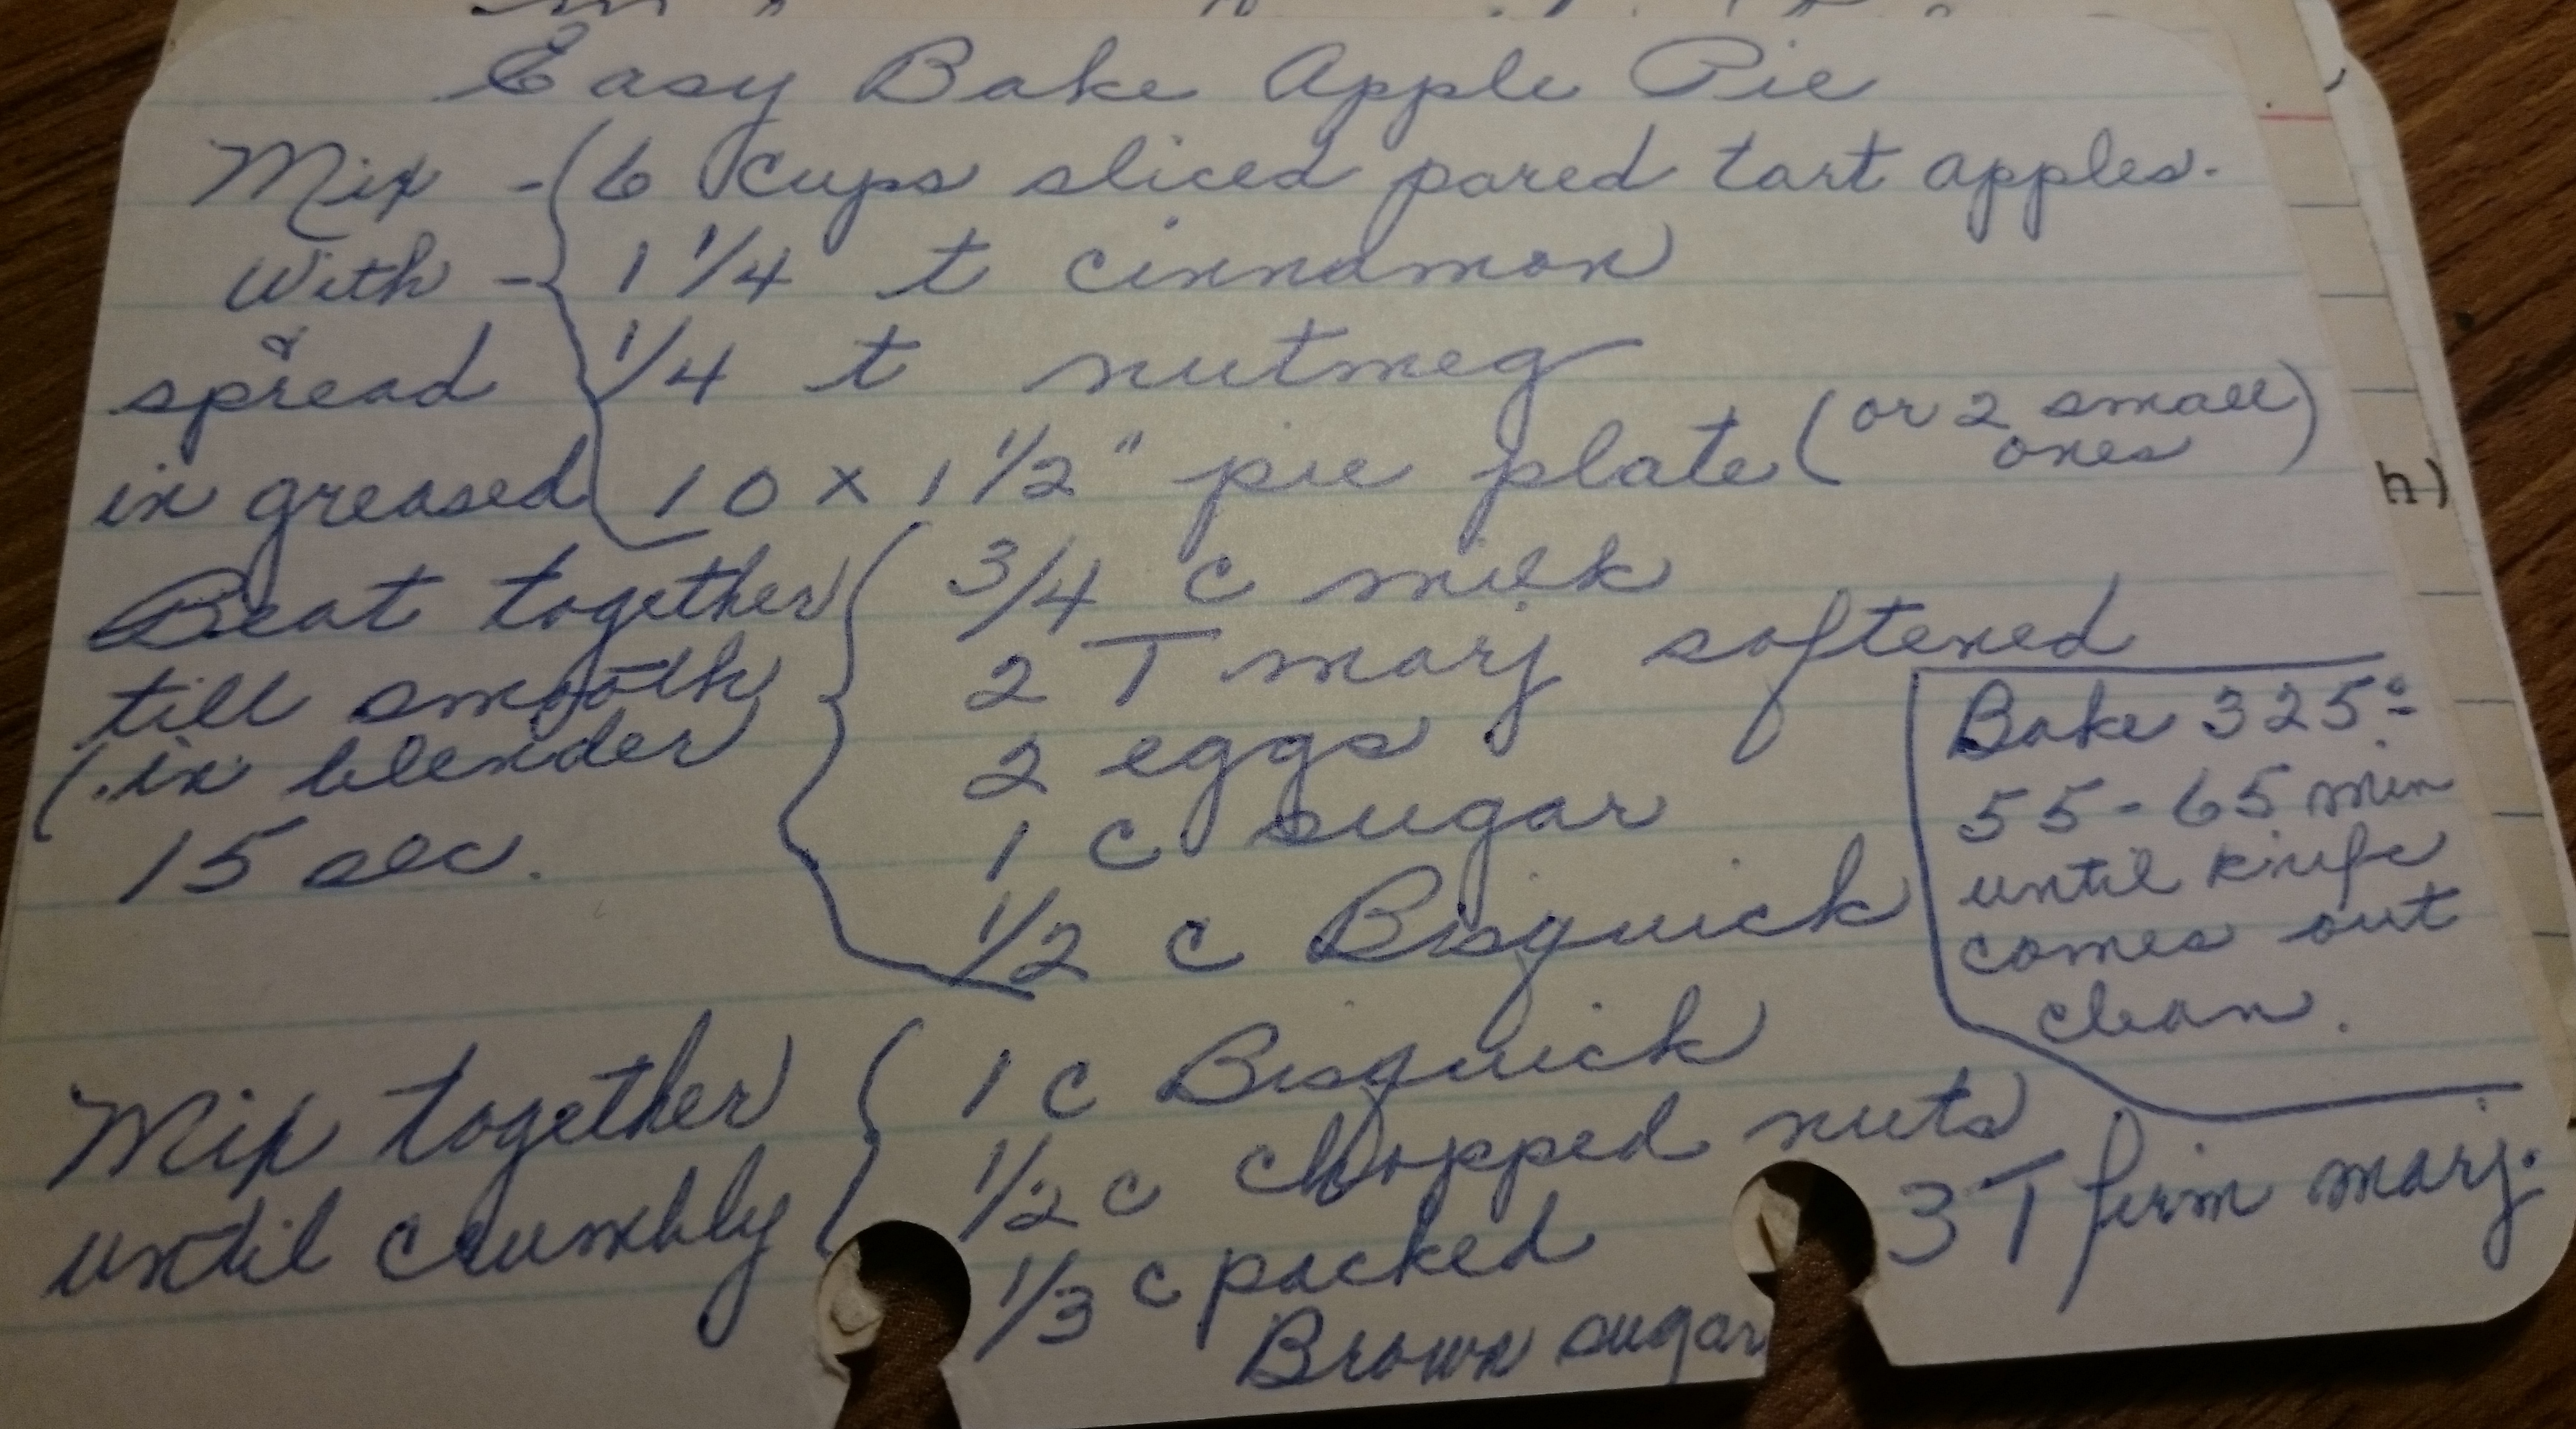 Easy Bake Apple Pie
Mix - 6 cups sliced pared tart apples.
With - 1 1/4 t cinnamon
&
spread 1/4 t nutmeg
in greased 10 x 1 1/2" pie plate (or 2 small ones)
Beat together
till smooth
(in blender
15 sec.
3/4 c milk
2 T marj softened
2 eggs
1 c sugar
1/2 c Bisquick
Bake 325°
55-65 min
until knife
comes out
clean.
Mix together
until crumbly
1 c Bisquick
1/2 c chopped nuts
1/3 c packed
Brown sugar
3 T firm marj.
h)